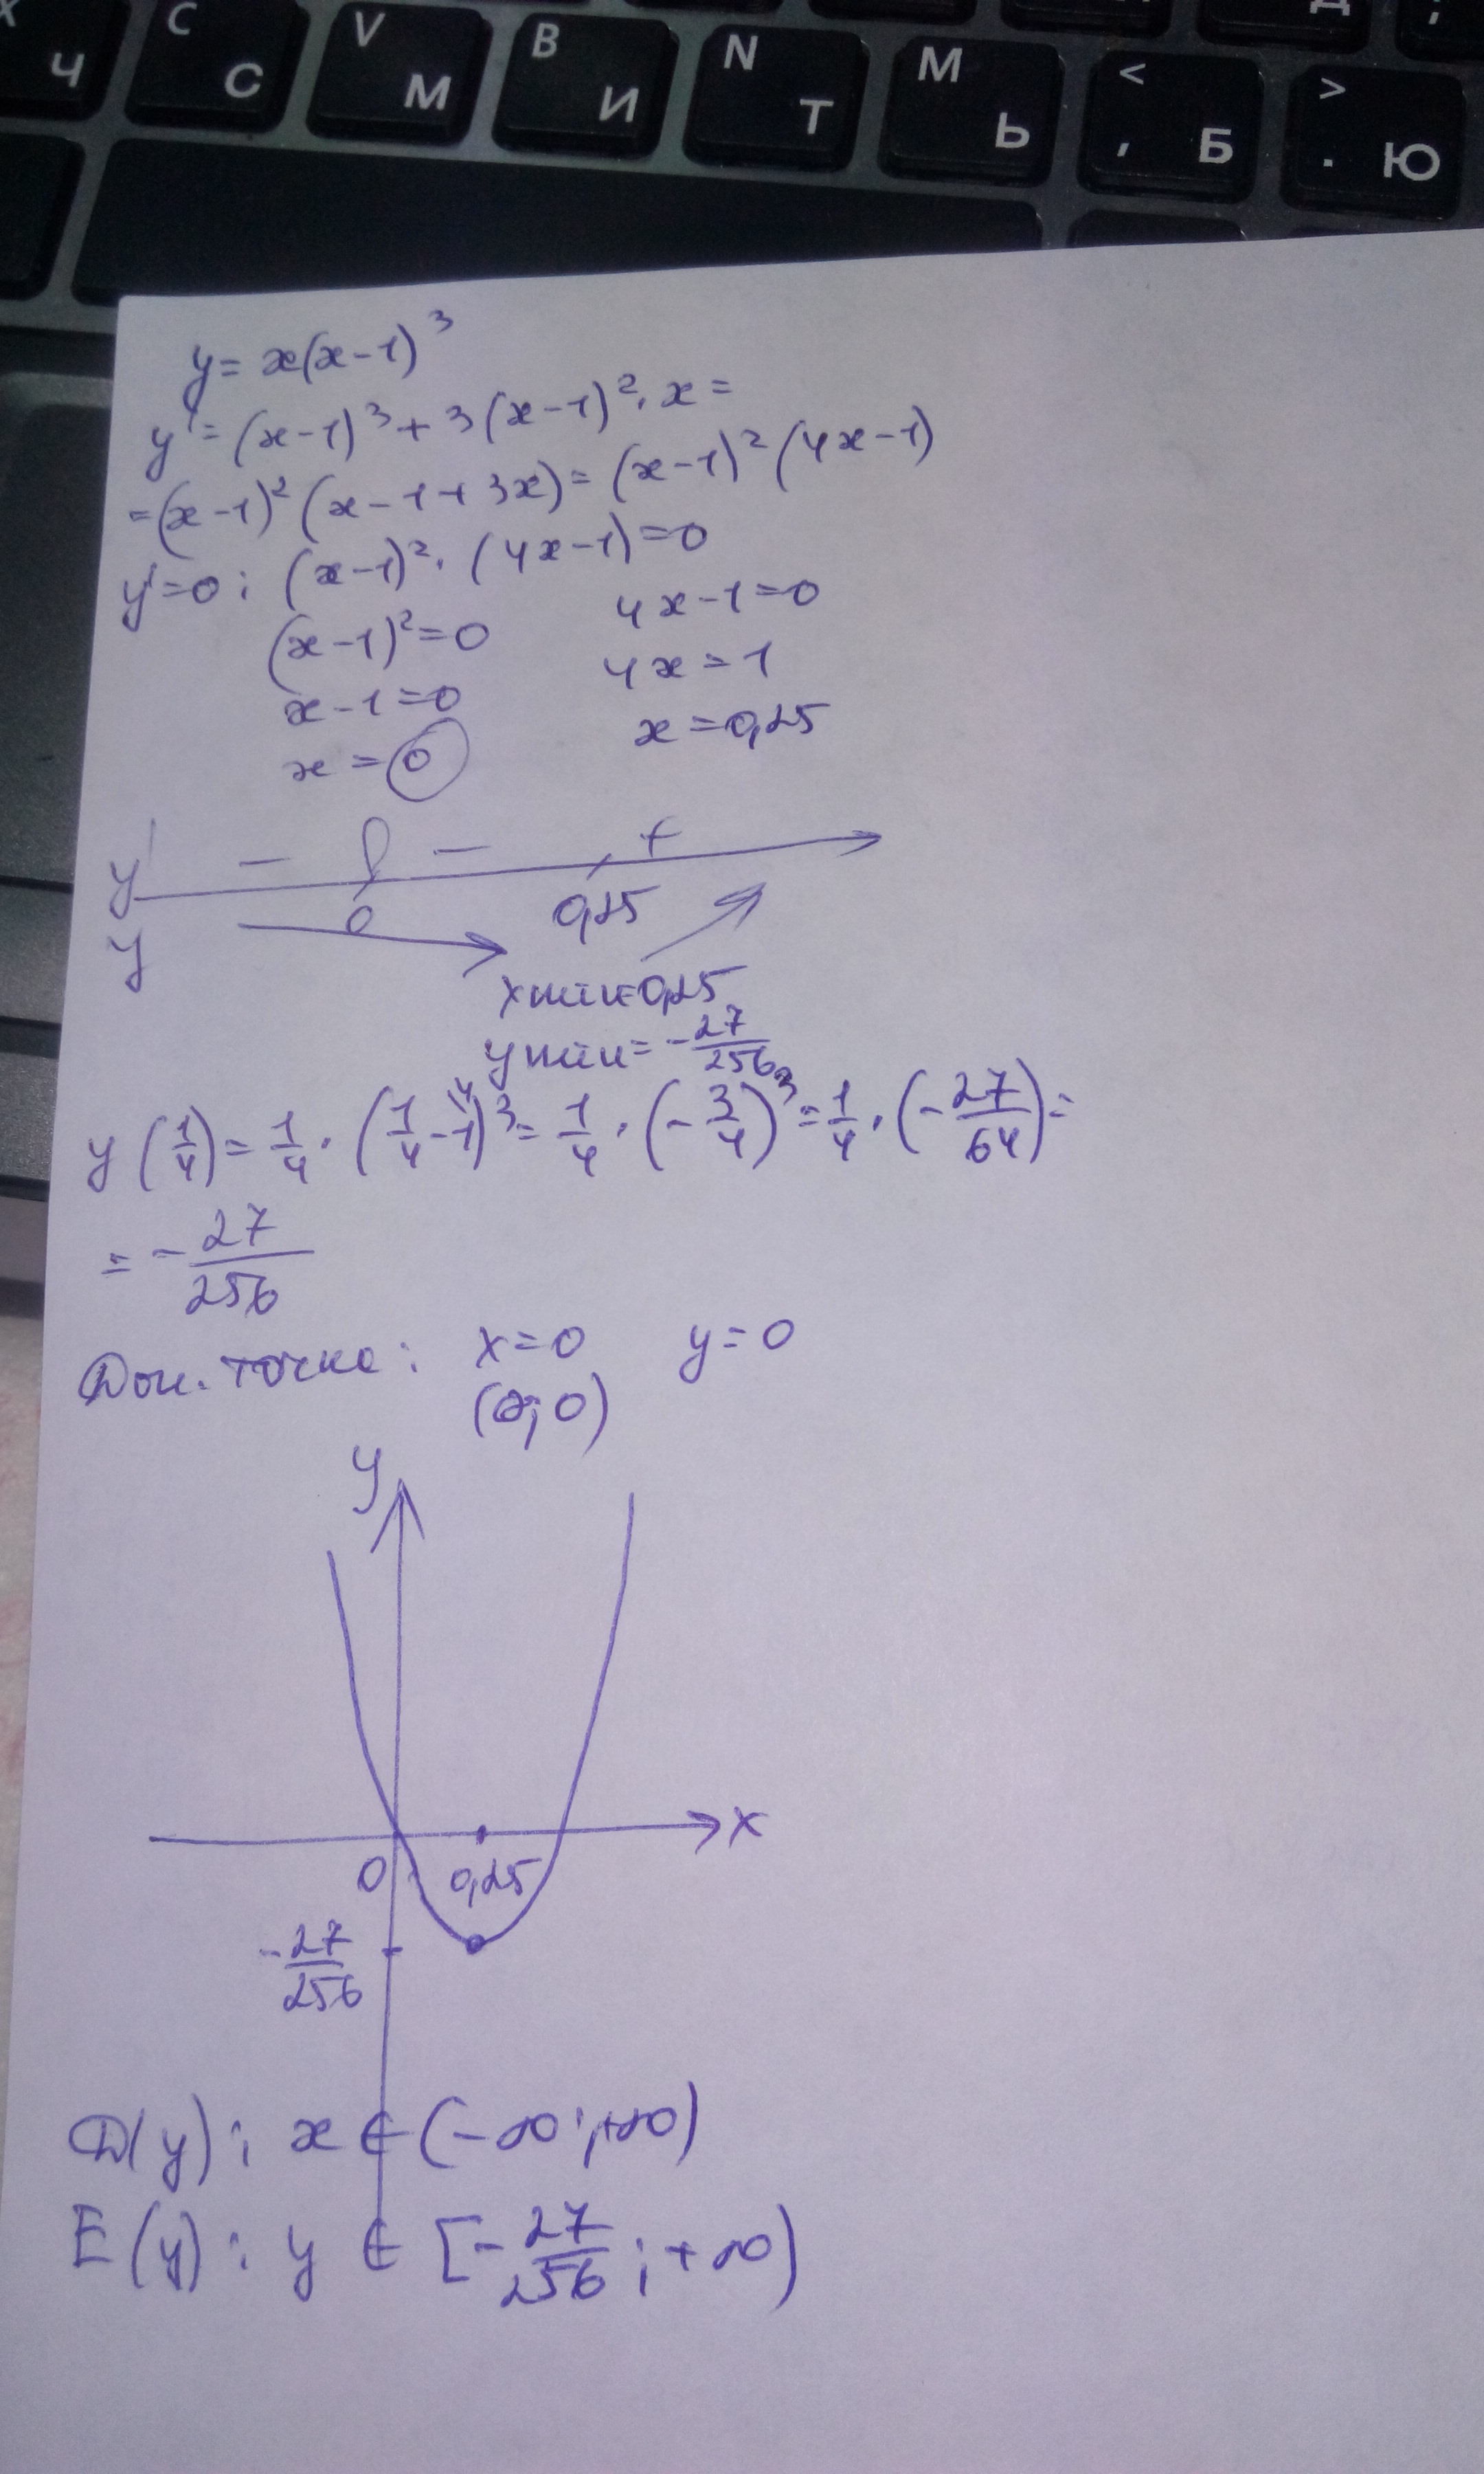 C V B N M < >
Ч С М И Т Ь , Б . Ю
y = x(x-1)³
y' = (x-1)³ + 3(x-1)² · x =
= (x-1)² (x-1+3x) = (x-1)² (4x-1)
y'=0: (x-1)² · (4x-1) = 0
(x-1)² = 0 4x-1=0
x-1=0 4x=1
x = 0 x = 0,25
y' - - +
0 0,25
y
xmin=0,25
ymin = -27/256
y(1/4) = 1/4 · (1/4 - 1)³ = 1/4 · (-3/4)³ = 1/4 · (-27/64) =
= -27/256
Доп. точки: x=0 y=0
(0;0)
y
x
0 0,25
-27/256
D(y): x ∈ (-∞;+∞)
E(y): y ∈ [-27/256;+∞)